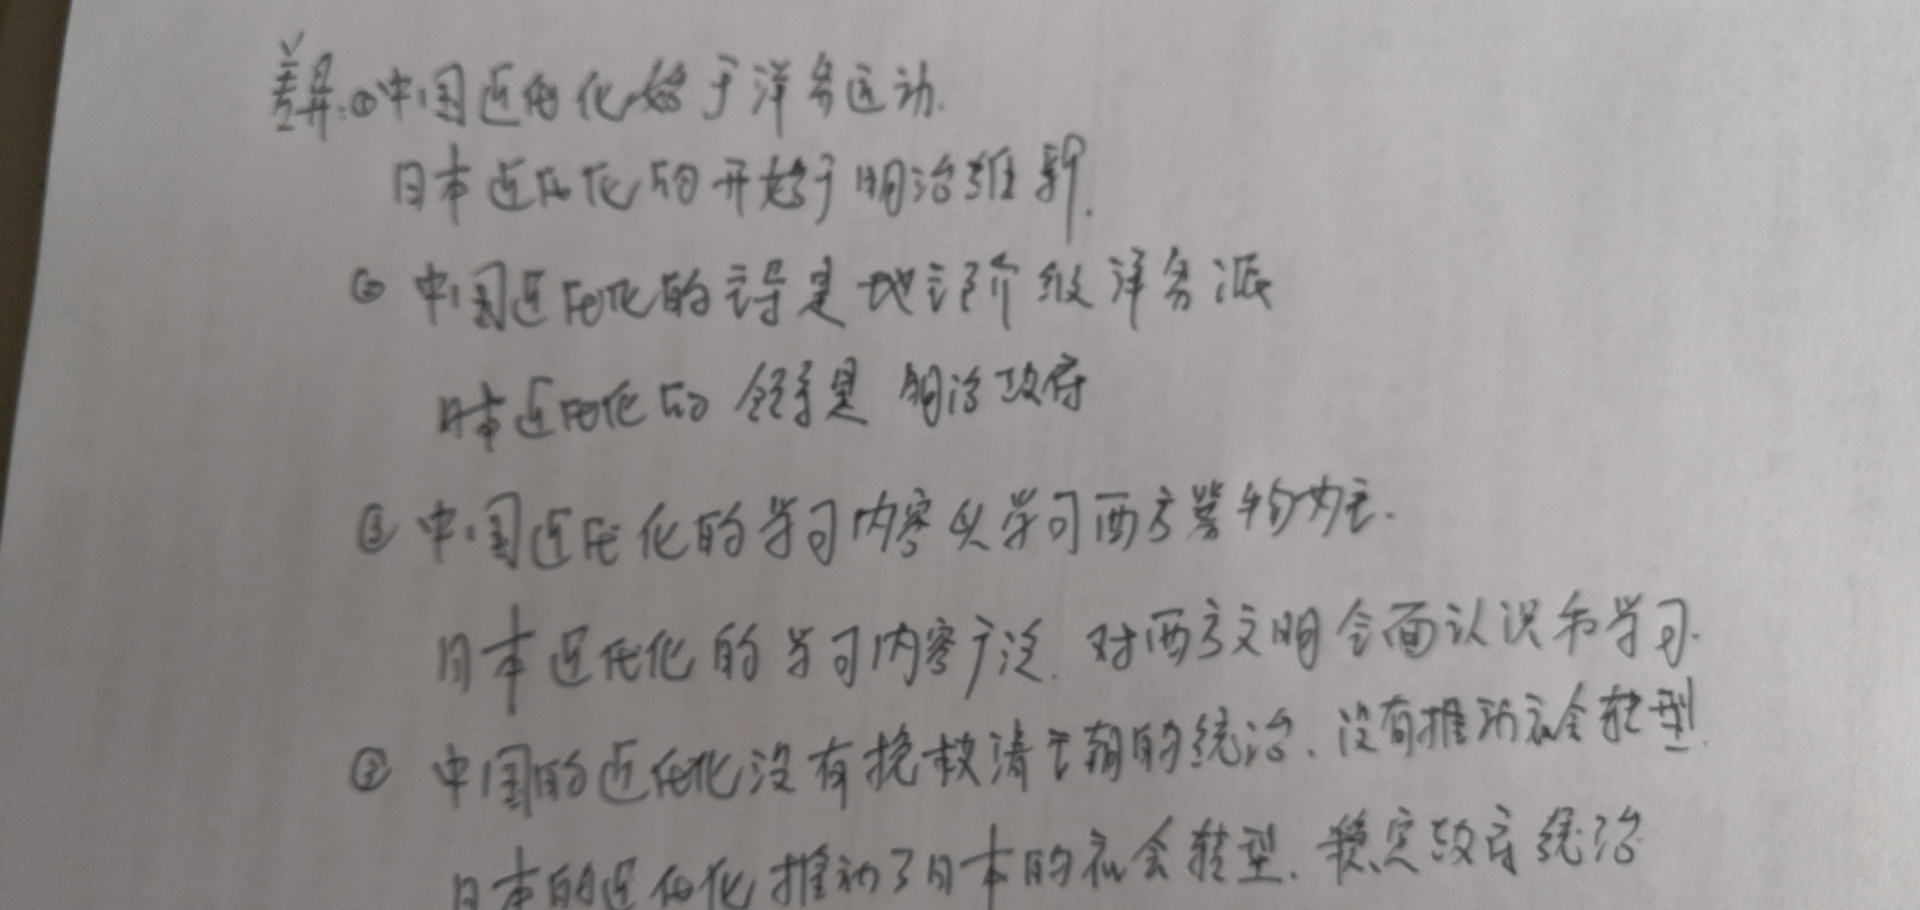 差异:①中国近代化始于洋务运动.
日本近代化的开始于明治维新.
② 中国近代化的主导是地主阶级洋务派
日本近代化的领导是明治政府
③ 中国近代化的学习内容以学习西方器物为主.
日本近代化的学习内容广泛.对西方文明全面认识和学习.
④ 中国的近代化没有挽救清王朝的统治.没有推动社会转型.
日本的近代化推动了日本的社会转型.稳定政府统治